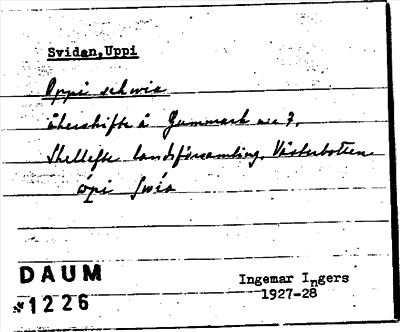 Svidan,Uppi
Oppi schvia
åkerskifte å Gummark no 7,
Skellefte landsförsamling, Västerbotten
òpi
DAUM
1226
Ingemar Ingers
1927-28